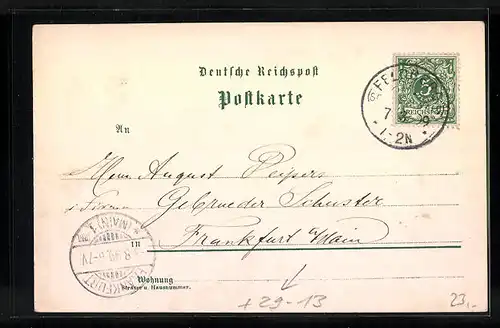 Deutsche Reichspost
Postkarte
An
Herrn August Peipers
i/Firma Gebrueder Schuster
Frankfurt a/Main
in
Wohnung
Straße u. Hausnummer.
5
REICHSPOST
7
1-2N
(MAIN) 1
FRANKFURT
+29-13
23,-